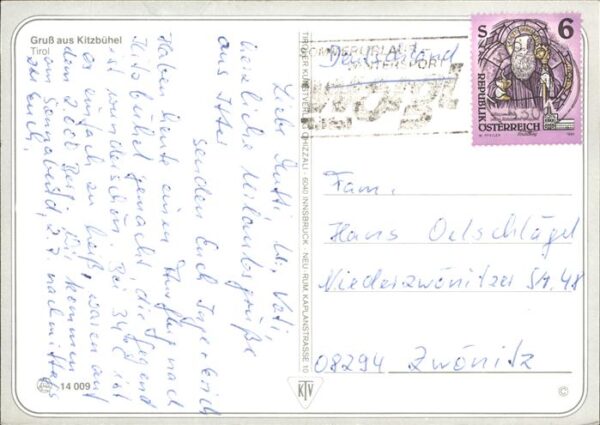 Gruß aus Kitzbühel
Tirol
Liebe Mutti, lb. Vati,
herzliche Urlaubsgrüße
aus Itter
senden Euch Inge + Erich
Haben heute einen Ausflug nach
Kitzbühel gemacht, die Gegend
ist wunderschön. Bei 34°C ist
es einfach zu heiß, waren auf
dem 2000 Berg. Wir kommen
am Sonnabend, 2.7. nachmittags
zu Euch.
14 009
TIROLER KUNSTVERLAG CHIZZALI · 6040 INNSBRUCK - NEU RUM, KAPLANSTRASSE 10
KTV
©
Deutschland
SOMMERURLAUB
S 6
REPUBLIK
ÖSTERREICH
Fam.
Hans Oelschlägel
Niederzwönitzer Str. 48
08294 Zwönitz